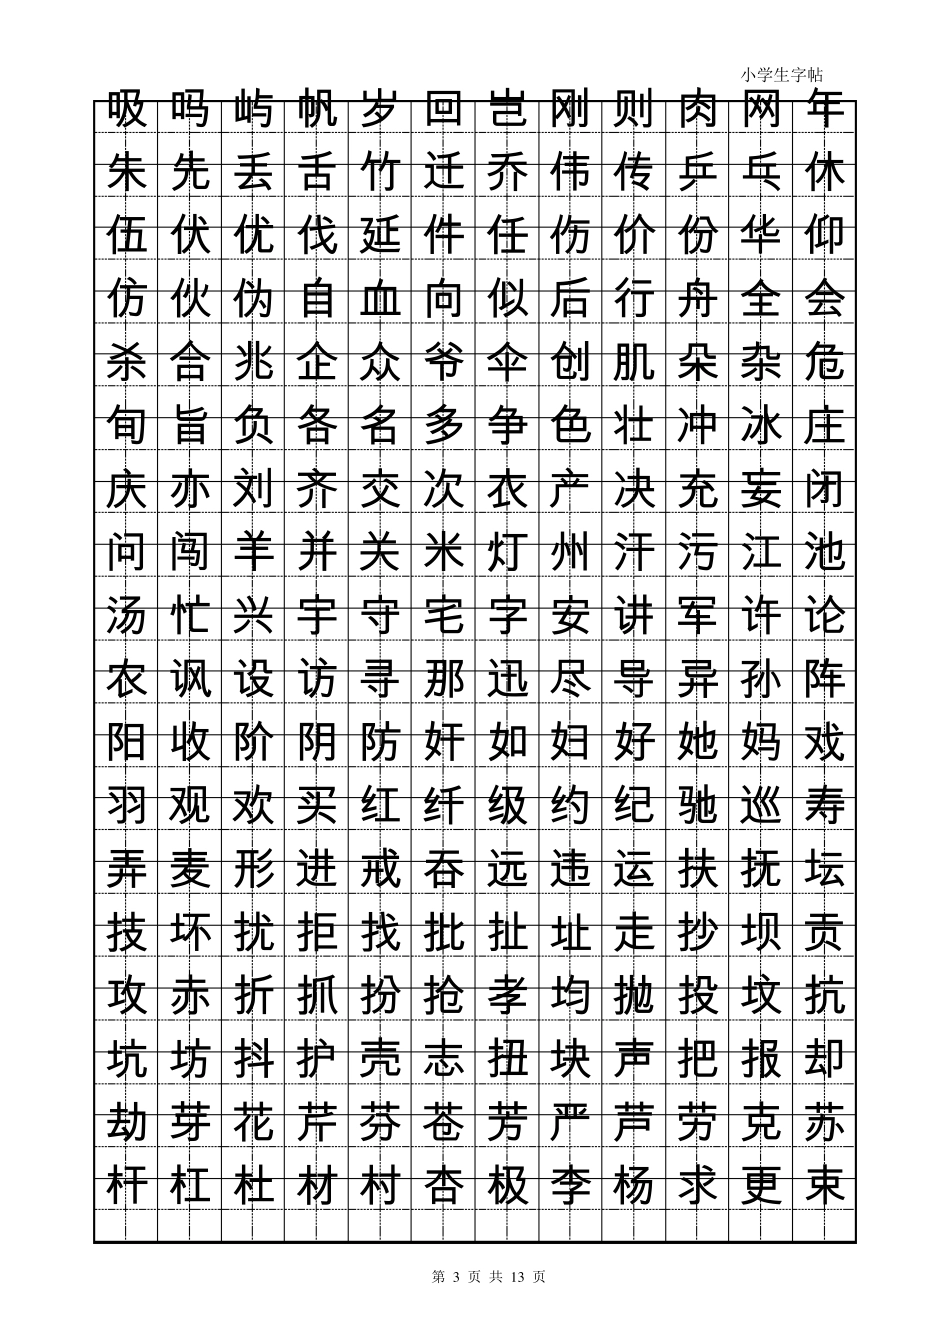 小学生字帖
吸吗屿帆岁回岂刚则肉网年
朱先丢舌竹迁乔伟传乒乓休
伍伏优伐延件任伤价份华仰
仿伙伪自血向似后行舟全会
杀合兆企众爷伞创肌朵杂危
旬旨负各名多争色壮冲冰庄
庆亦刘齐交次衣产决充妄闭
问闯羊并关米灯州汗污江池
汤忙兴宇守宅字安讲军许论
农讽设访寻那迅尽导异孙阵
阳收阶阴防奸如妇好她妈戏
羽观欢买红纤级约纪驰巡寿
弄麦形进戒吞远违运扶抚坛
技坏扰拒找批扯址走抄坝贡
攻赤折抓扮抢孝均抛投坟抗
坑坊抖护壳志扭块声把报却
劫芽花芹芬苍芳严芦劳克苏
杆杠杜材村杏极李杨求更束
第 3 页 共 13 页